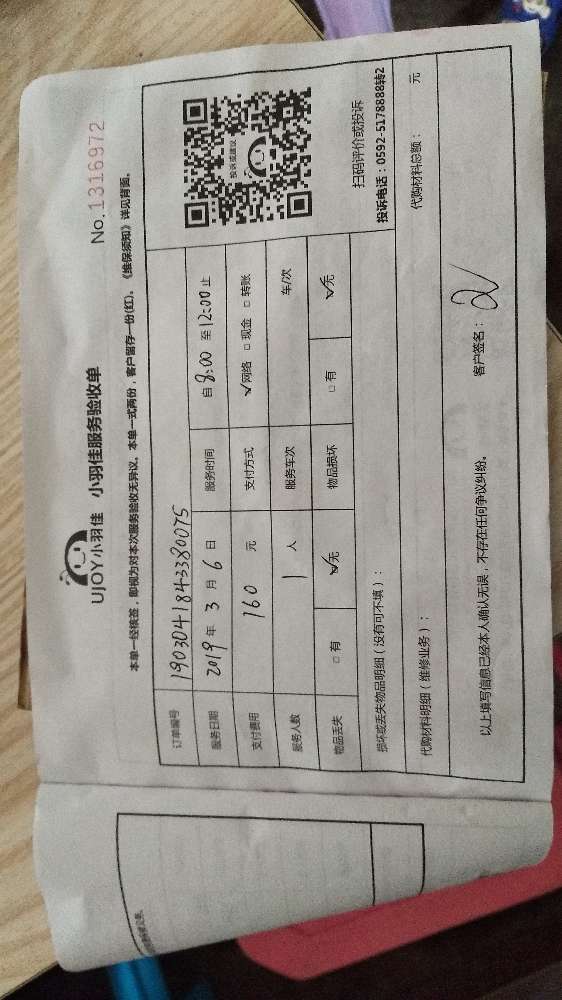 UJOY小羽佳 小羽佳服务验收单
No.1316972
本单一经核签，即视为对本次服务验收无异议。本单一式两份，客户留存一份(红)。《维保须知》详见背面。
订单编号 19030418433380075
服务日期 2019年 3 月 6 日 服务时间 自 8:00 至 12:00 止
支付费用 160 元 支付方式 ✓网络 □ 现金 □ 转账
服务人数 1 人 服务车次 车/次
物品丢失 □ 有 ✓无 物品损坏 □ 有 ✓无
投诉或建议
扫码评价或投诉
投诉电话：0592-5178888转2
损坏或丢失物品明细（没有可不填）：
代购材料明细（维修业务）： 代购材料总额： 元
以上填写信息已经本人确认无误，不存在任何争议纠纷。 客户签名：